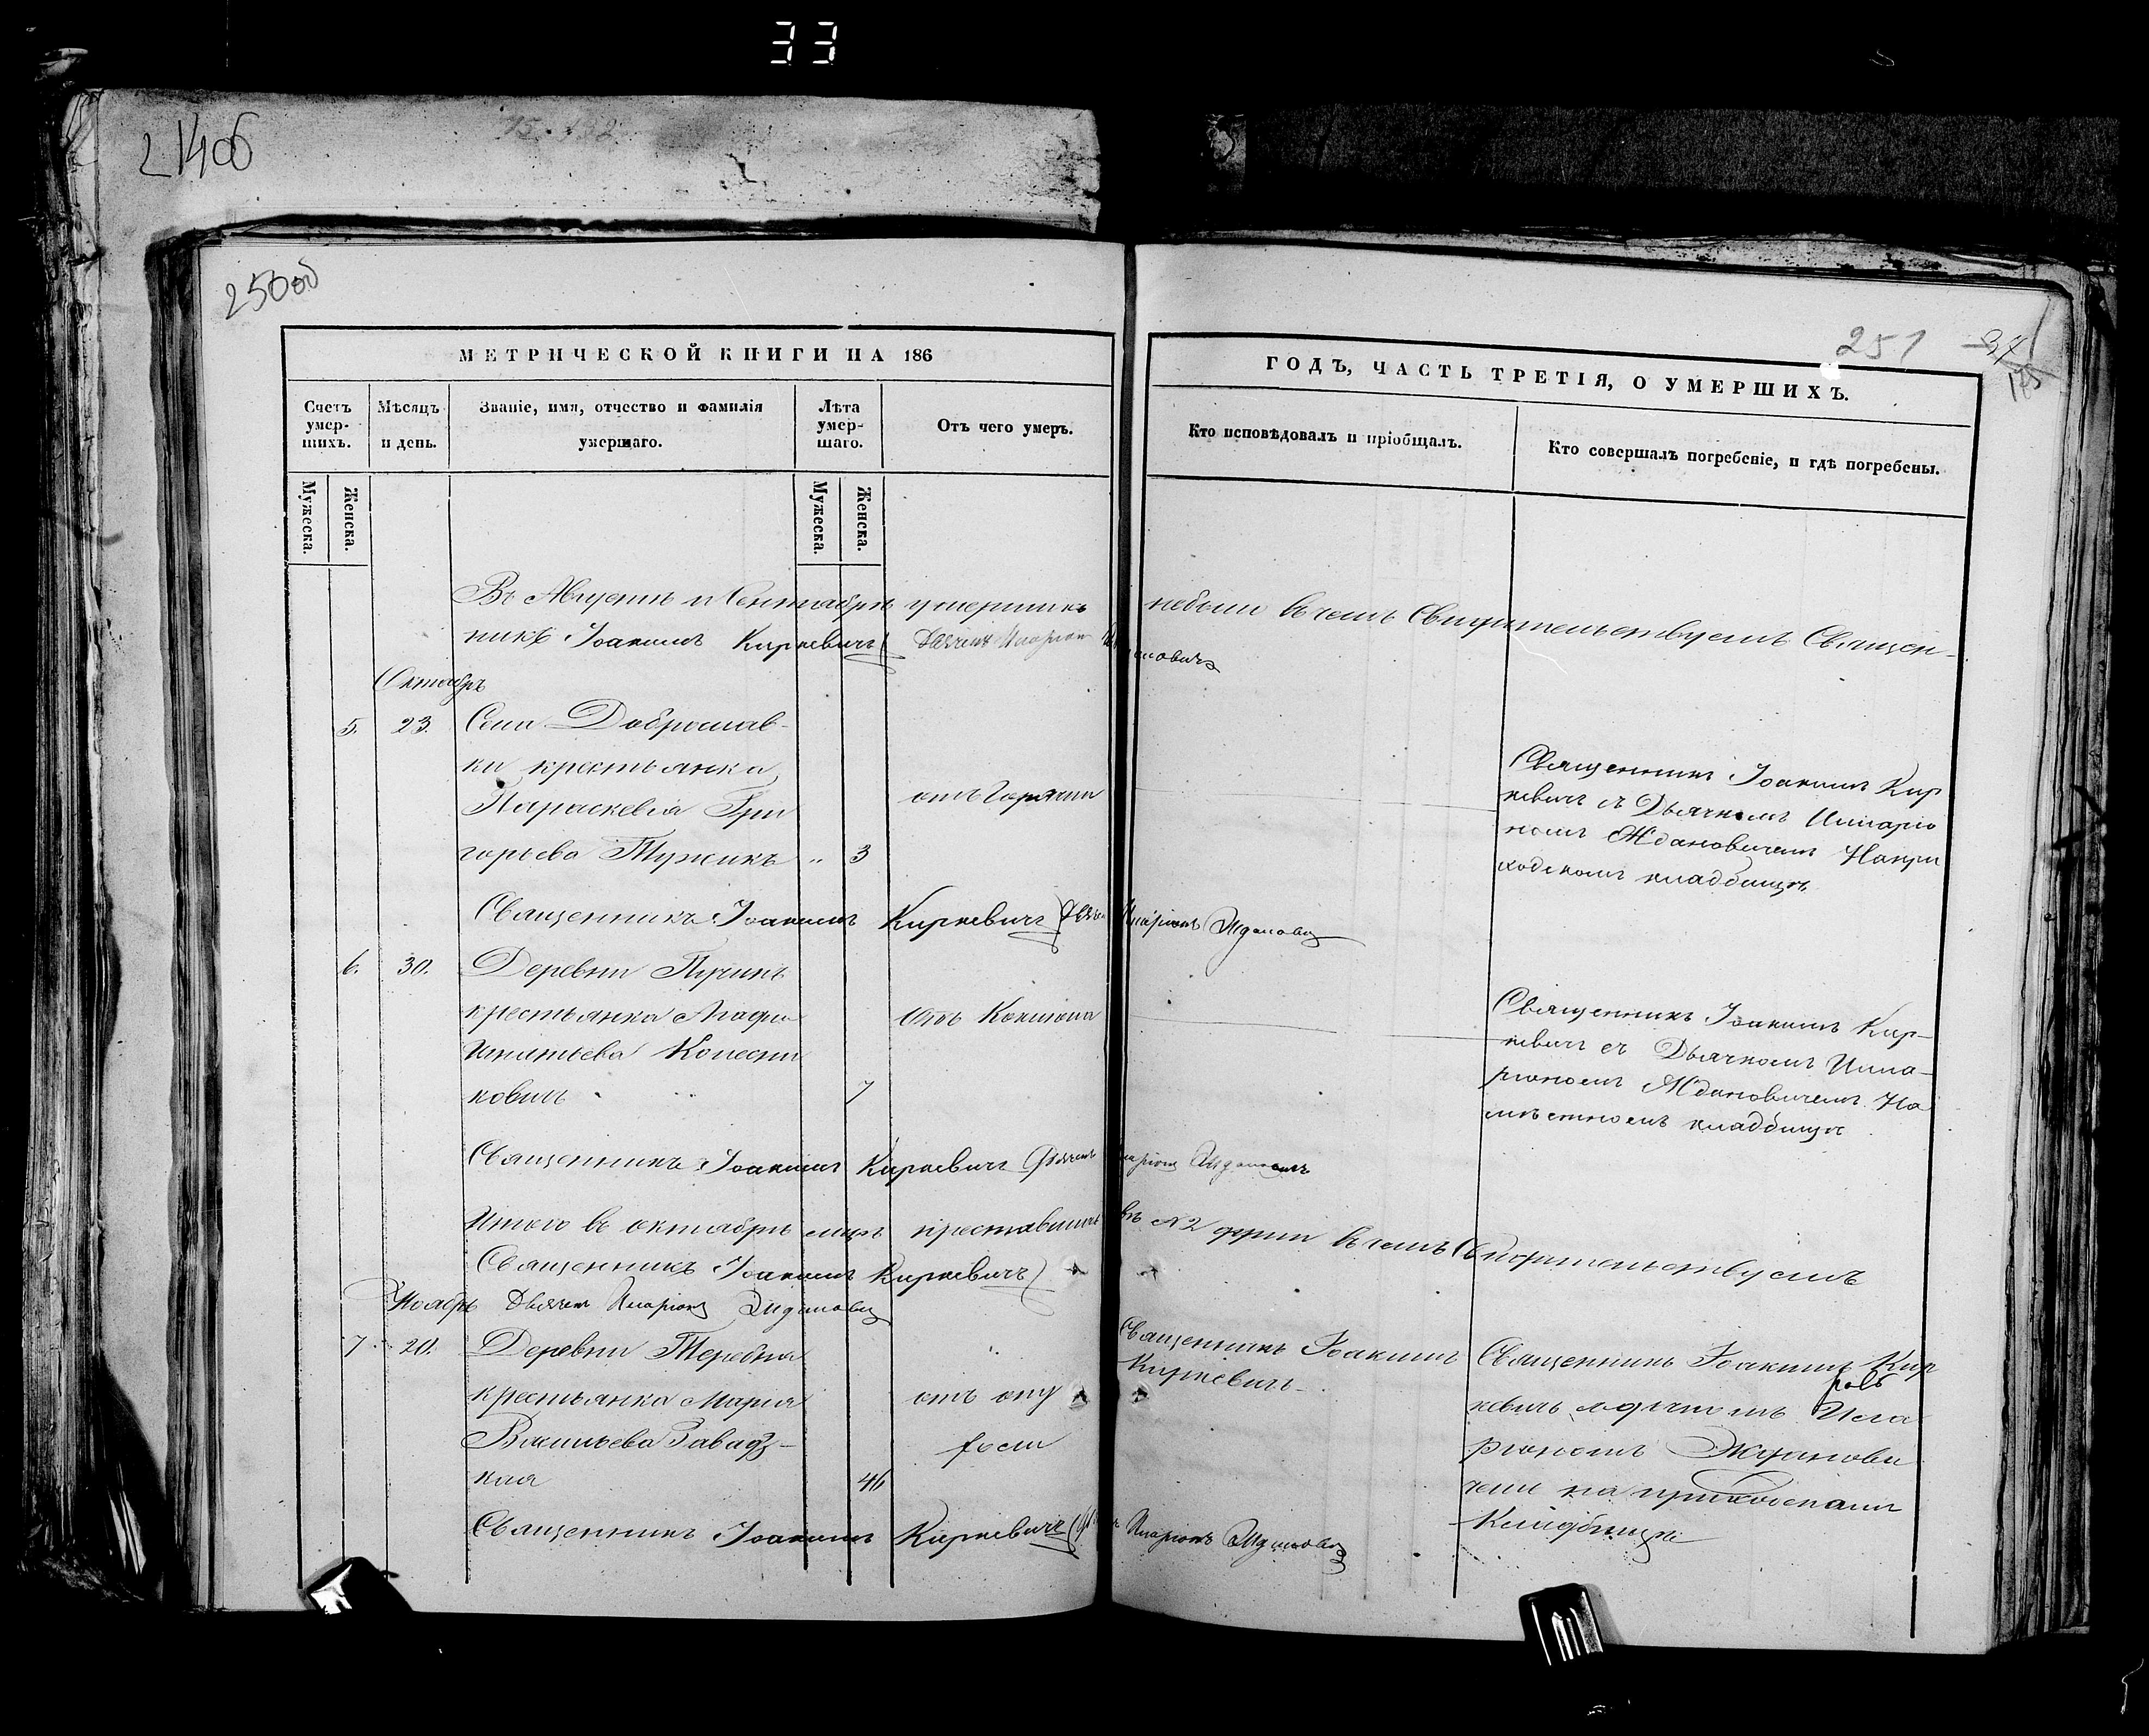 33
21406
250об
251
МЕТРИЧЕСКОЙ КНИГИ НА 186
ГОДЪ, ЧАСТЬ ТРЕТІЯ, О УМЕРШИХЪ.
Счетъ умер-шихъ.
Мѣсяцъ и день.
Званіе, имя, отчество и фамилія умершаго.
Лѣта умер-шаго.
Отъ чего умеръ.
Кто исповѣдовалъ и пріобщалъ.
Кто совершалъ погребеніе, и гдѣ погребены.
Мужеска.
Женска.
Мужеска.
Женска.
Въ Августѣ и Сентябрѣ умершихъ небыли въ чемъ Свидѣтельствуемъ Священ-
никъ Іоакимъ Киркевичъ Дьячекъ Иларіонъ
Октябрь
5. 23. Села Доброслав-
ки крестьянка
Параскевія Гри
горьева Тужикъ " 3
отъ горячки
Священникъ Іоакимъ Кир
кевичъ съ Дьячкомъ Иларіо
номъ Ждановичемъ На при
ходскомъ кладбищѣ
Священникъ Іоакимъ Киркевичъ Дьячекъ Иларіонъ Ждановичъ
6. 30. Деревни Пучинъ
крестьянка Агафія
Игнатьева Колесни
ковичъ 7
Отъ Коклюша
Священникъ Іоакимъ Кир-
кевичъ съ Дьячкомъ Ила-
ріономъ Ждановичемъ На
мѣстномъ кладбищѣ
Священникъ Іоакимъ Киркевичъ Дьячекъ Иларіонъ Ждановичъ
Итого въ октябрѣ мцѣ преставшихъ №2 души въ чемъ Свидѣтельствуемъ
Священникъ Іоакимъ Киркевичъ
Ноябрь Дьячекъ Иларіонъ Ждановичъ
7 20. Деревни Теребня
крестьянка Марія
Васильева Завадз-
кая 46
отъ опу
холи
Священникъ Іоакимъ
Киркевичъ
Священникъ Іоакимъ Кир
кевичъ съ дьячкомъ Ила
ріономъ Ждانови
чемъ на приходскомъ
Кладбищѣ
Священникъ Іоакимъ Киркевичъ Иларіонъ Ждановичъ